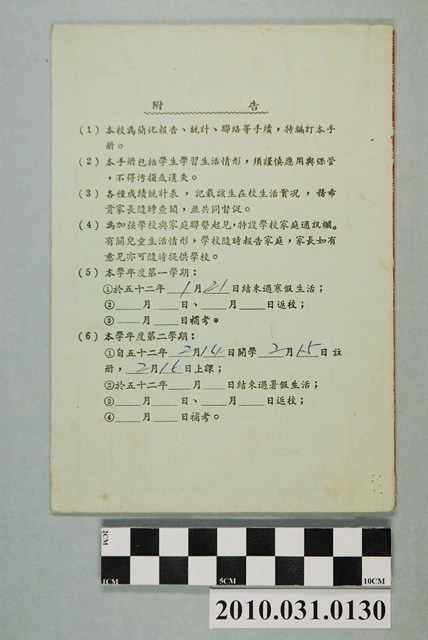 附 告
(1) 本校為簡化報告、統計、聯絡等手續,特編訂本手
冊。
(2) 本手冊包括學生學習生活情形,須謹慎應用與保管
,不得污損或遺失。
(3) 各種成績統計表,記載該生在校生活實況,務希
貴家長隨時查閱,並共同督促。
(4) 為加強學校與家庭聯繫起見,特設學校家庭通訊欄。
有關兒童生活情形,學校隨時報告家庭,家長如有
意見亦可隨時提供學校。
(5) 本學年度第一學期:
①於五十二年 1月21日結束過寒假生活;
②___月___日、___月___日返校;
③___月___日補考。
(6) 本學年度第二學期:
①自五十二年 2月14日開學 2月15日 註
冊, 2月16日上課;
②於五十二年___月___日結束過暑假生活;
③___月___日、___月___日返校;
④___月___日補考。
2CM
1CM 5CM 10CM
2010.031.0130